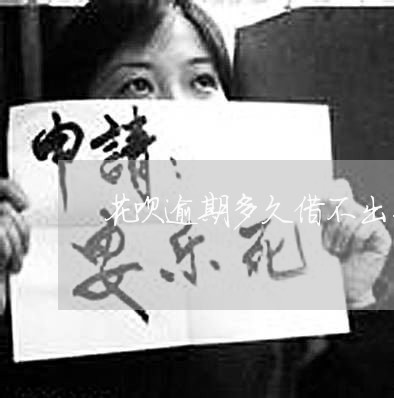 申請：
花呗逾期多久借不出
安乐死